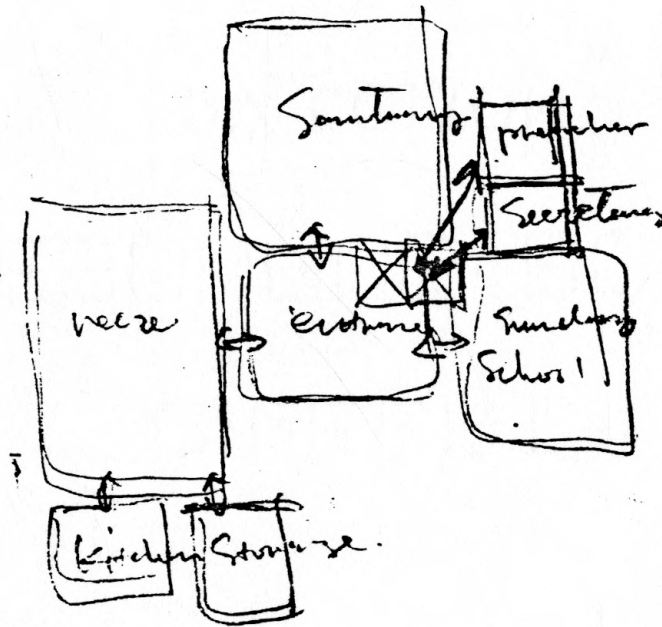 Sanctuary
preacher
Secretary
entrance
Sunday
School
Kitchen Storage.